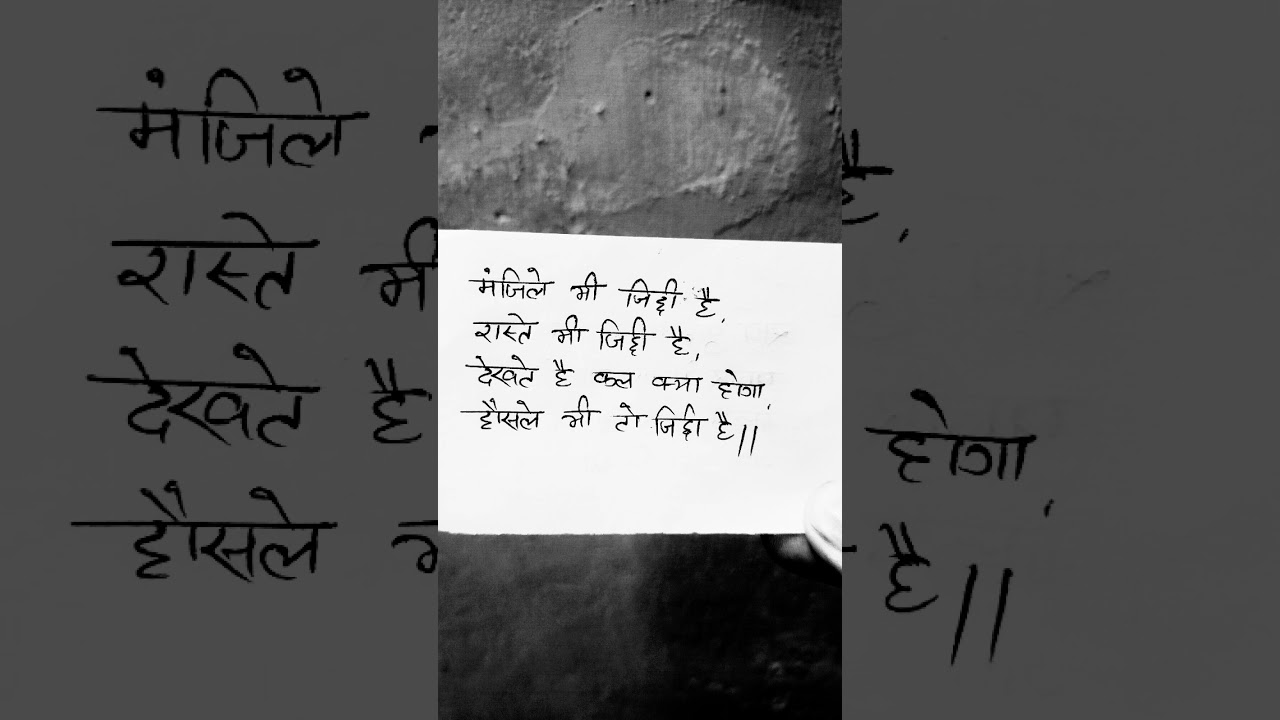 मंजिले भी जिद्दी है,
रास्ते भी जिद्दी है,
देखते है कल क्या होगा,
हौसले भी तो जिद्दी है||